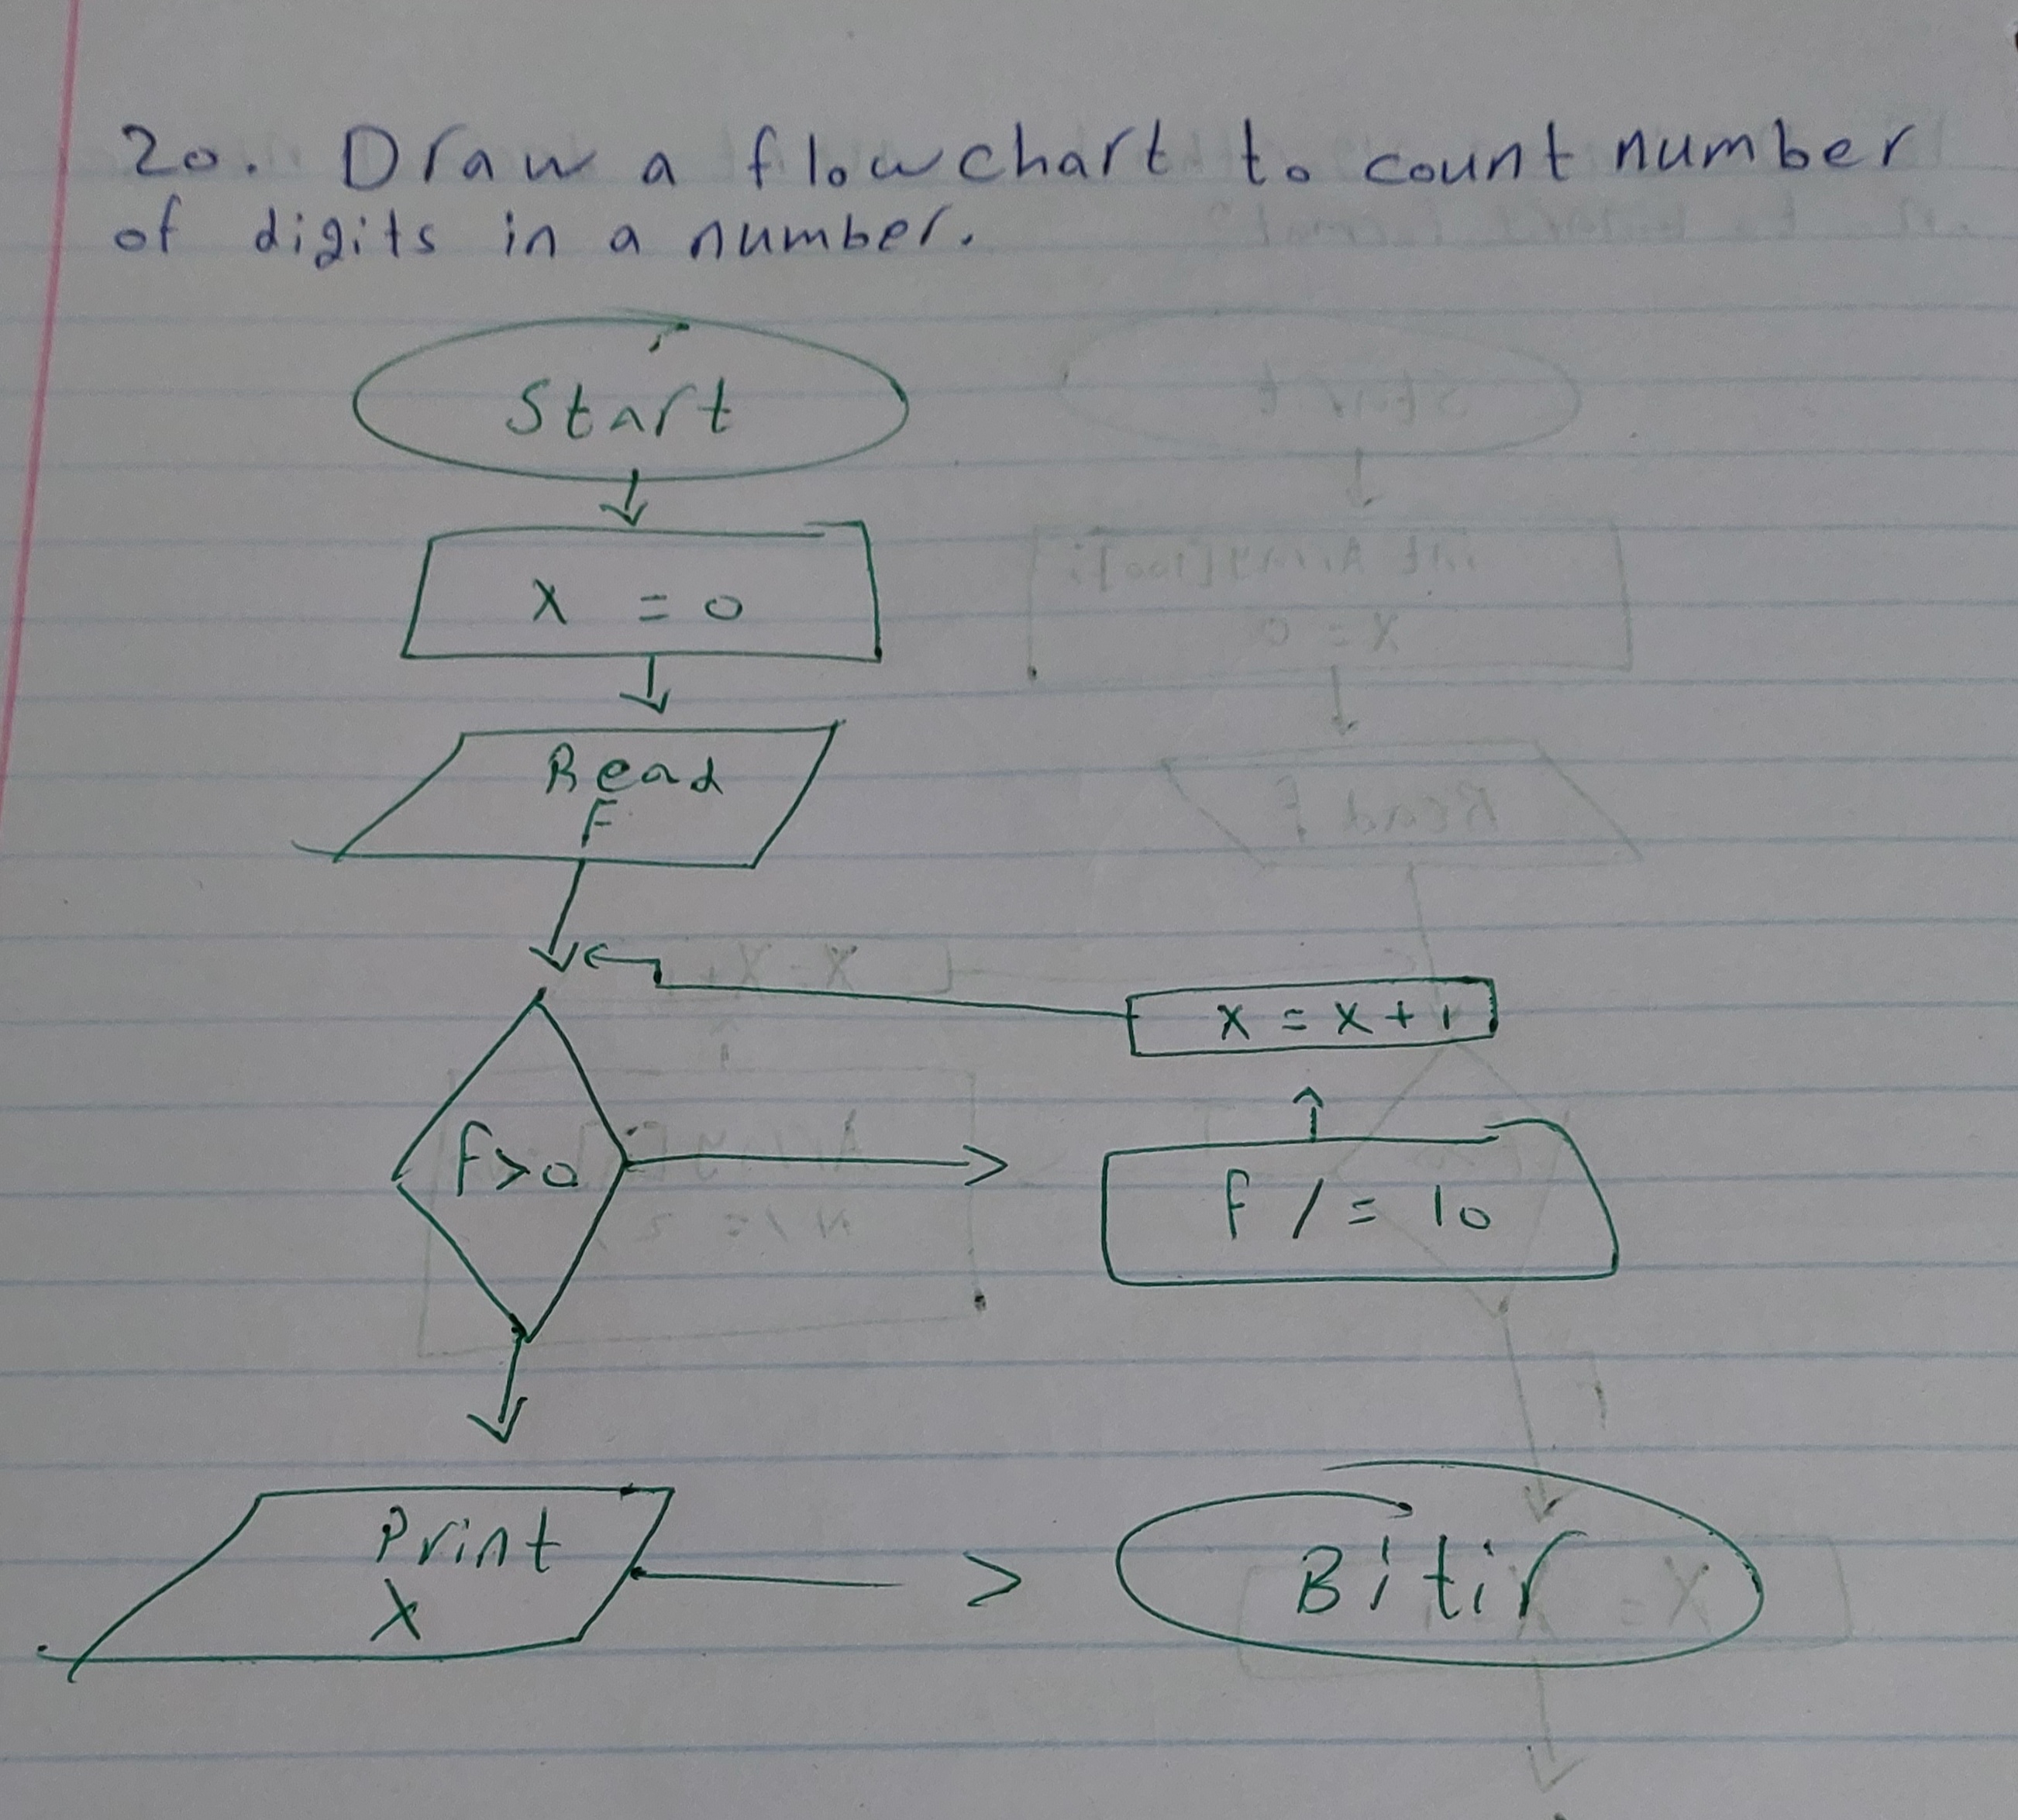 20. Draw a flowchart to count number
of digits in a number.
Start
X = 0
Read
F
X = X + 1
f>0
f /= 10
Print
X
Bitir